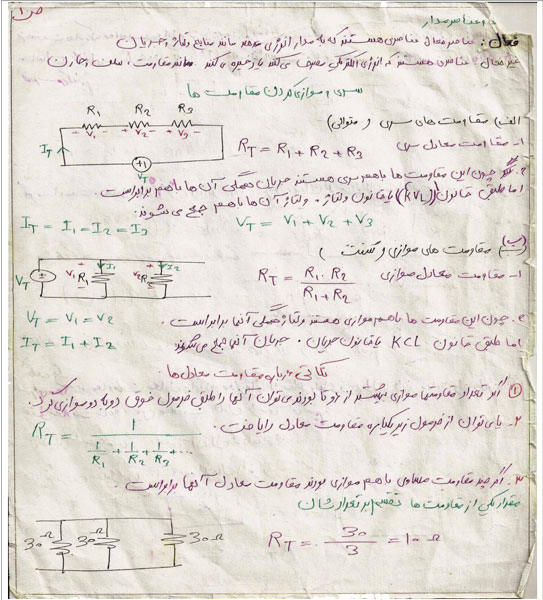 ص ۱
عناصر مدار
فعال: عناصر فعال عناصری هستند که به مدار انرژی می‌دهند مانند منابع ولتاژ و جریان
غیر فعال: عناصری هستند که انرژی الکتریکی مصرف می‌کنند یا ذخیره می‌کنند مانند مقاومت، سلف و خازن
سری و موازی کردن مقاومت ها
الف) مقاومت های سری و متوالی)
R1 R2 R3
+ V1 - + V2 - + V3 -
IT
VT
۱- مقاومت معادل سری RT = R1 + R2 + R3
۲. چون این مقاومت ها باهم سری هستند جریان همگی آن ها باهم برابر است.
اما طبق قانون (KVL) یا قانون ولتاژ، ولتاژ آن ها باهم جمع می شوند:
IT = I1 = I2 = I3 VT = V1 + V2 + V3
ب) مقاومت های موازی و شنت)
VT V1 R1 I1 V2 R2 I2
۱- مقاومت معادل موازی RT = R1 . R2 / R1 + R2
۲. چون این مقاومت ها باهم موازی هستند ولتاژ همگی آنها برابر است.
VT = V1 = V2
اما طبق قانون KCL یا قانون جریان، جریان آنها جمع می شوند
IT = I1 + I2
نکاتی درباره مقاومت معادل ها
۱ اگر تعداد مقاومتهای موازی بیشتر از دو تا بودند می توان آنها را طبق فرمول فوق دو به دو موازی کرد.
۲- یا می توان از فرمول زیر یکباره مقاومت معادل را یافت.
RT = 1 / 1/R1 + 1/R2 + 1/R3 + ...
۳. اگر چند مقاومت مساوی باهم موازی بودند مقاومت معادل آنها برابر است.
مقدار یکی از مقاومت ها تقسیم بر تعدادشان
30Ω 30Ω 30Ω
RT = 30 / 3 = 10 Ω